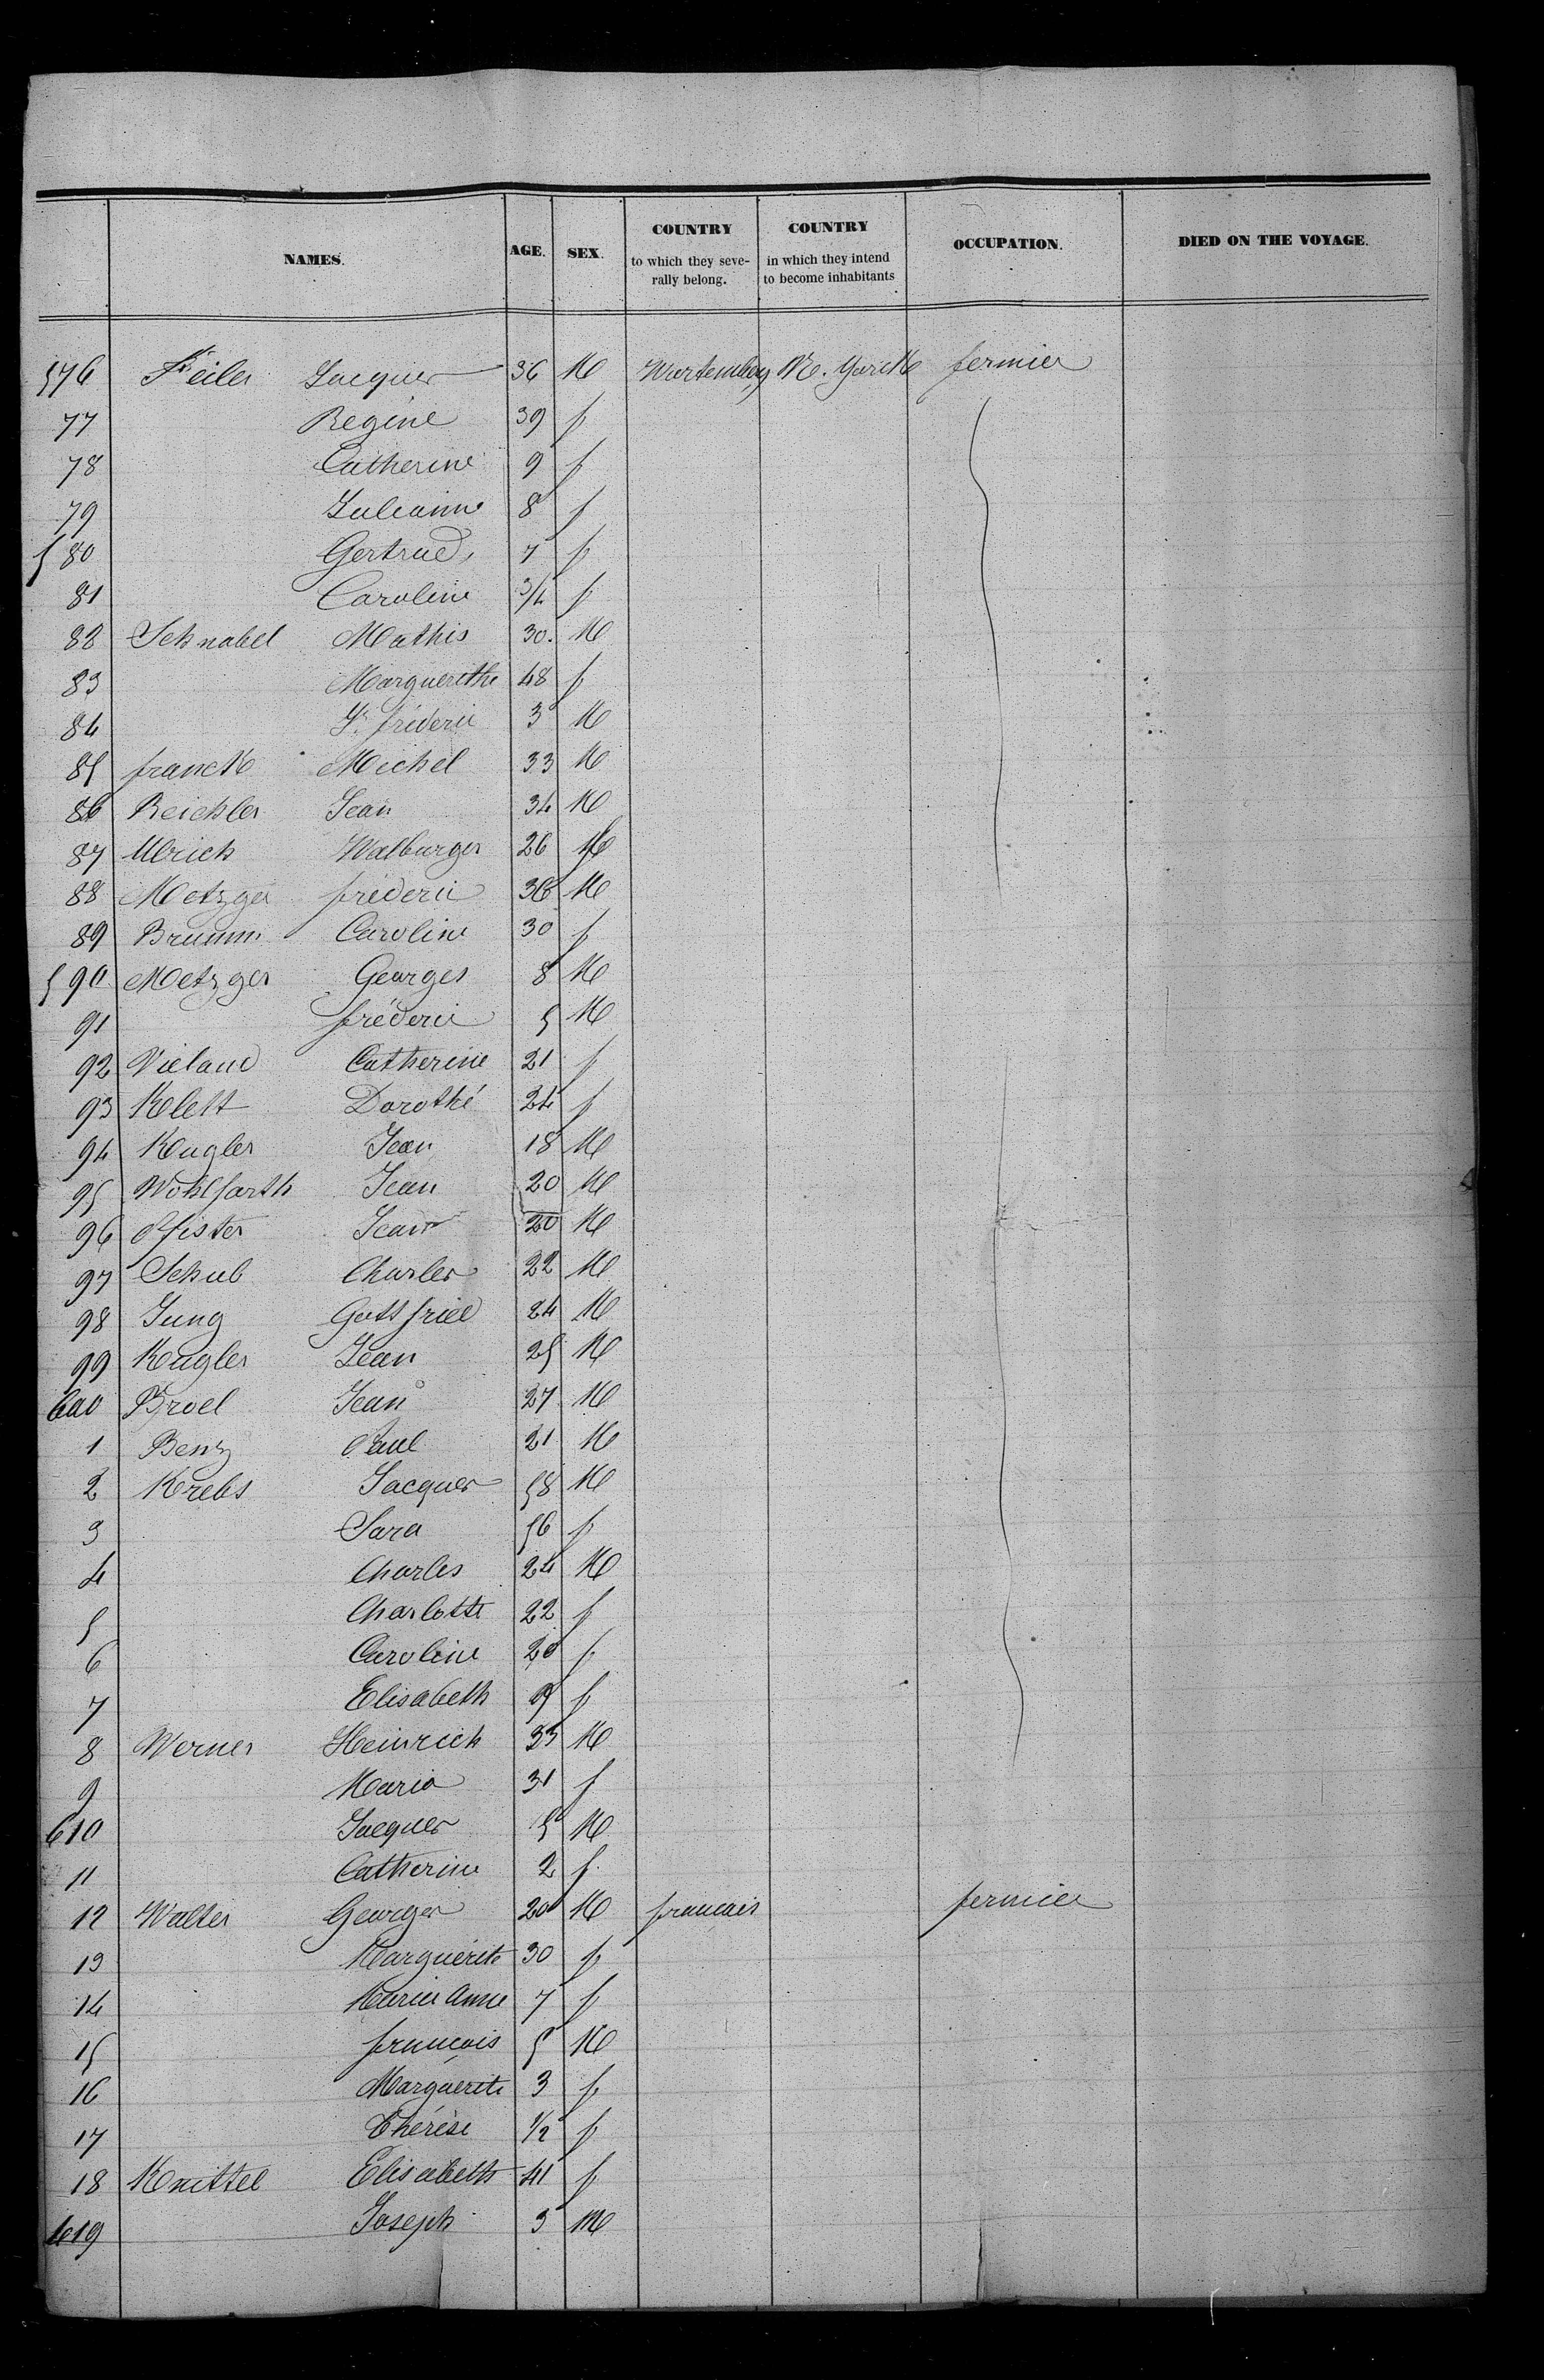 NAMES. AGE. SEX. COUNTRY to which they severally belong. COUNTRY in which they intend to become inhabitants OCCUPATION. DIED ON THE VOYAGE.
576 Keiler Jacques 36 M Wurtemberg Ne. Yorck fermier
77 Regine 39 f
78 Catherine 9 f
79 Julianne 8 f
580 Gertrud 7 f
81 Caroline 3/4 f
82 Schnabel Mathis 30. M
83 Marguerithe 48 f
84 J. fréderic 3 M
85 franck Michel 33 M
86 Reichler Jean 34 M
87 Ulrich Walburger 26
88 Metzger fréderic 36 M
89 Brumm Caroline 30 f
590 Metzger Georges 8 M
91 fréderic 5 M
92 Vieland Catherine 21 f
93 Klett Dorothé 24 f
94 Kugler Jean 18 M
95 Wohlfarth Jean 20 M
96 Pfister Jean 20 M
97 Schub Charles 22 M
98 Jung Gottfried 24 M
99 Kugler Jean 25 M
600 Broel Jean 27 M
1 Benz Paul 21 M
2 Krebs Jacques 58 M
3 Sara 56 f
4 Charles 24 M
5 Charlotte 22 f
6 Caroline 20 f
7 Elisabeth 9 f
8 Werner Heinrich 33 M
9 Maria 31 f
610 Jacques 5 M
11 Catherine 2 f
12 Walter Georges 20 M francais fermier
13 Marguérite 30 f
14 Marie Anne 7 f
15 françois 5 M
16 Marguerite 3 f
17 Thérèse 1/2 f
18 Knittel Elisabeth 41 f
619 Joseph 3 M